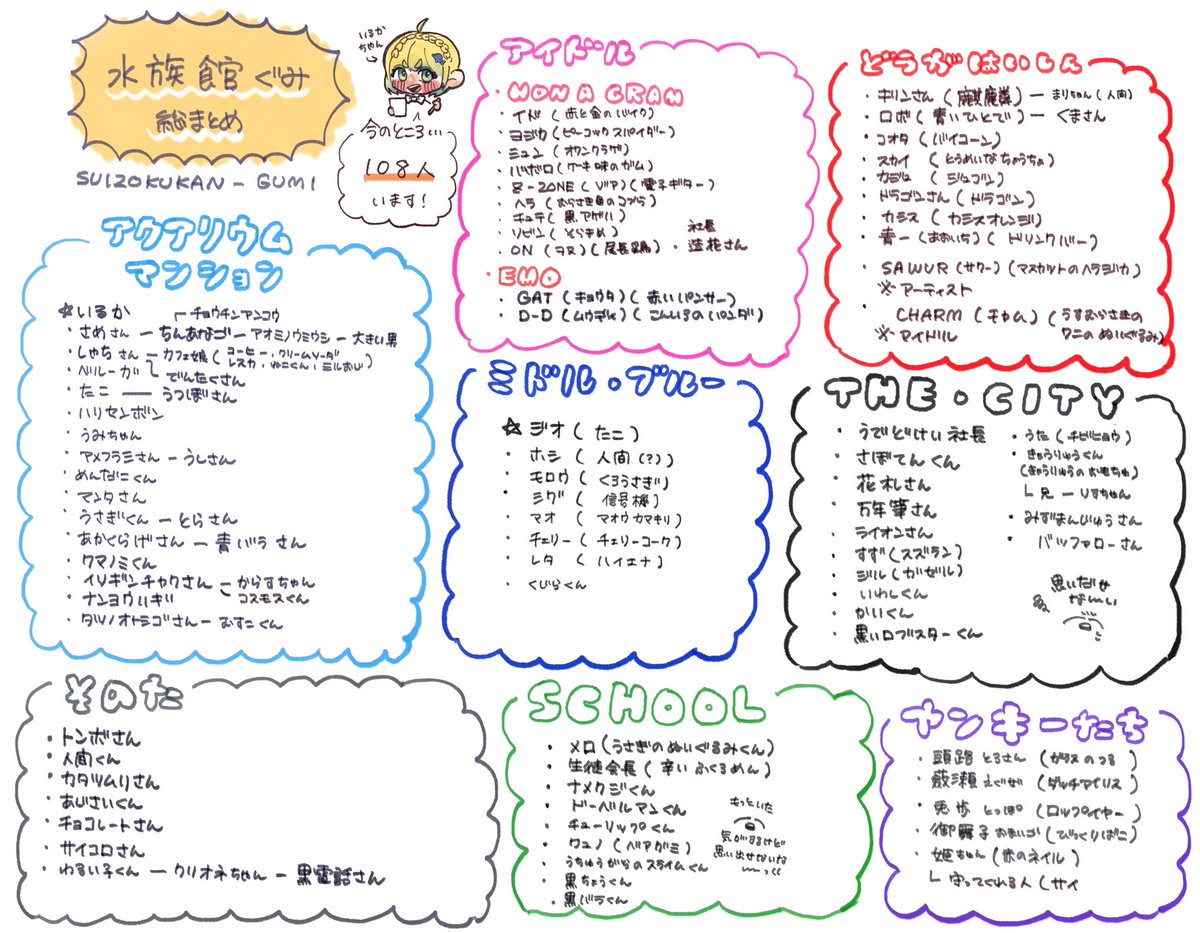 水族館ぐみ
総まとめ
SUIZOKUKAN-GUMI
いるかちゃん
今のところ…
108人
います!
アクアリウム
マンション
☆いるか
チョウチンアンコウ
・さめさん ー ちんあなご ー アオミノウミウシ ー 大きい男
・しゃちさん ー カフェ娘(コーヒー・クリームソーダ
レスカ・
・ベルーガ
でんたくさん
・たこ ー うつぼさん
・ハリセンボン
・うみちゃん
・アメフラシさん ー うしさん
・めんだこくん
・マンタさん
・うさぎくん ー とらさん
・あかくらげさん ー 青バラさん
・クマノミくん
・イソギンチャクさん ー からすちゃん
・ナンヨウハギ
コスモスくん
・タツノオトシゴさん ー むすこくん
アイドル
・MON A GRAM
・イド(赤と金のバイク)
・ヨジカ(ピーコックスパイダー)
・ミュン(オワンクラゲ)
・バボロ(ケーキ味のガム)
・8-ZONE(電子ギター)
・ヘラ(むらさき色のコブラ)
・チュテ(黒アゲハ)
・ソビン(とらきめ)
・ON(ヲヌ)(尾長鶏)
社長
・蓮花さん
・EMO
・GAT(キョウタ)(赤いパンサー)
・D-D(ムウディ)(こんいろのパンダ)
どうがはいしん
・キリンさん(麒麟)ー まりちゃん(人間)
・ロボ(青いひとで)ー くまさん
・コオタ(バイコーン)
・スカイ(とうめいなちょうちょ)
・カジュ(ジュゴン)
・ドラゴンさん(ドラゴン)
・カシス(カシスオレンジ)
・青一(あおいち)(ドリンクバー)
・SAWUR(サワー)(マスカットのヘラジカ)
※アーティスト
・CHARM(チャム)(うすむらさきの
ワニのぬいぐるみ)
※アイドル
ミドル・ブルー
☆ジオ(たこ)
・ホシ(人間(?))
・モロウ(くろうさぎ)
・シグ(信号機)
・マオ(マオウカマキリ)
・チェリー(チェリーコーク)
・レタ(ハイエナ)
・くじらくん
THE・CITY
・うでどけい社長
・さぼてんくん
・花札さん
・万年筆さん
・ライオンさん
・すず(スズラン)
・ジル(ガゼル)
・いわしくん
・かいくん
・黒いロブスターくん
・うた(チビヒョウ)
・きょうりゅうくん
(きょうりゅうのおもちゃ)
└兄 ー りすちゃん
・みずまんじゅうさん
・バッファローさん
思いだせ
な〜い
そのた
・トンボさん
・人間くん
・カタツムりさん
・あじさいくん
・チョコレートさん
・サイコロさん
・わるい子くん ー クリオネちゃん ー 黒電話さん
SCHOOL
・メロ(うさぎのぬいぐるみくん)
・生徒会長(辛いふくろめん)
・ナメクジくん
・ドーベルマンくん
・チューリップくん
・ワュノ(ベアグミ)
・うちゅうからのスライムくん
・黒ちょうくん
・黒バラくん
もっといた
気がするけど
思い出せないな
ヤンキーたち
・頭路とるさん(ガラスのつる)
・薮瀬えぐぜ(ダッチアイリス)
・兎歩とっぽ(ロップイヤー)
・御舞子おまいご(びっくりばこ)
・姫ちゃん(赤のネイル)
└守ってくれる人(サイ